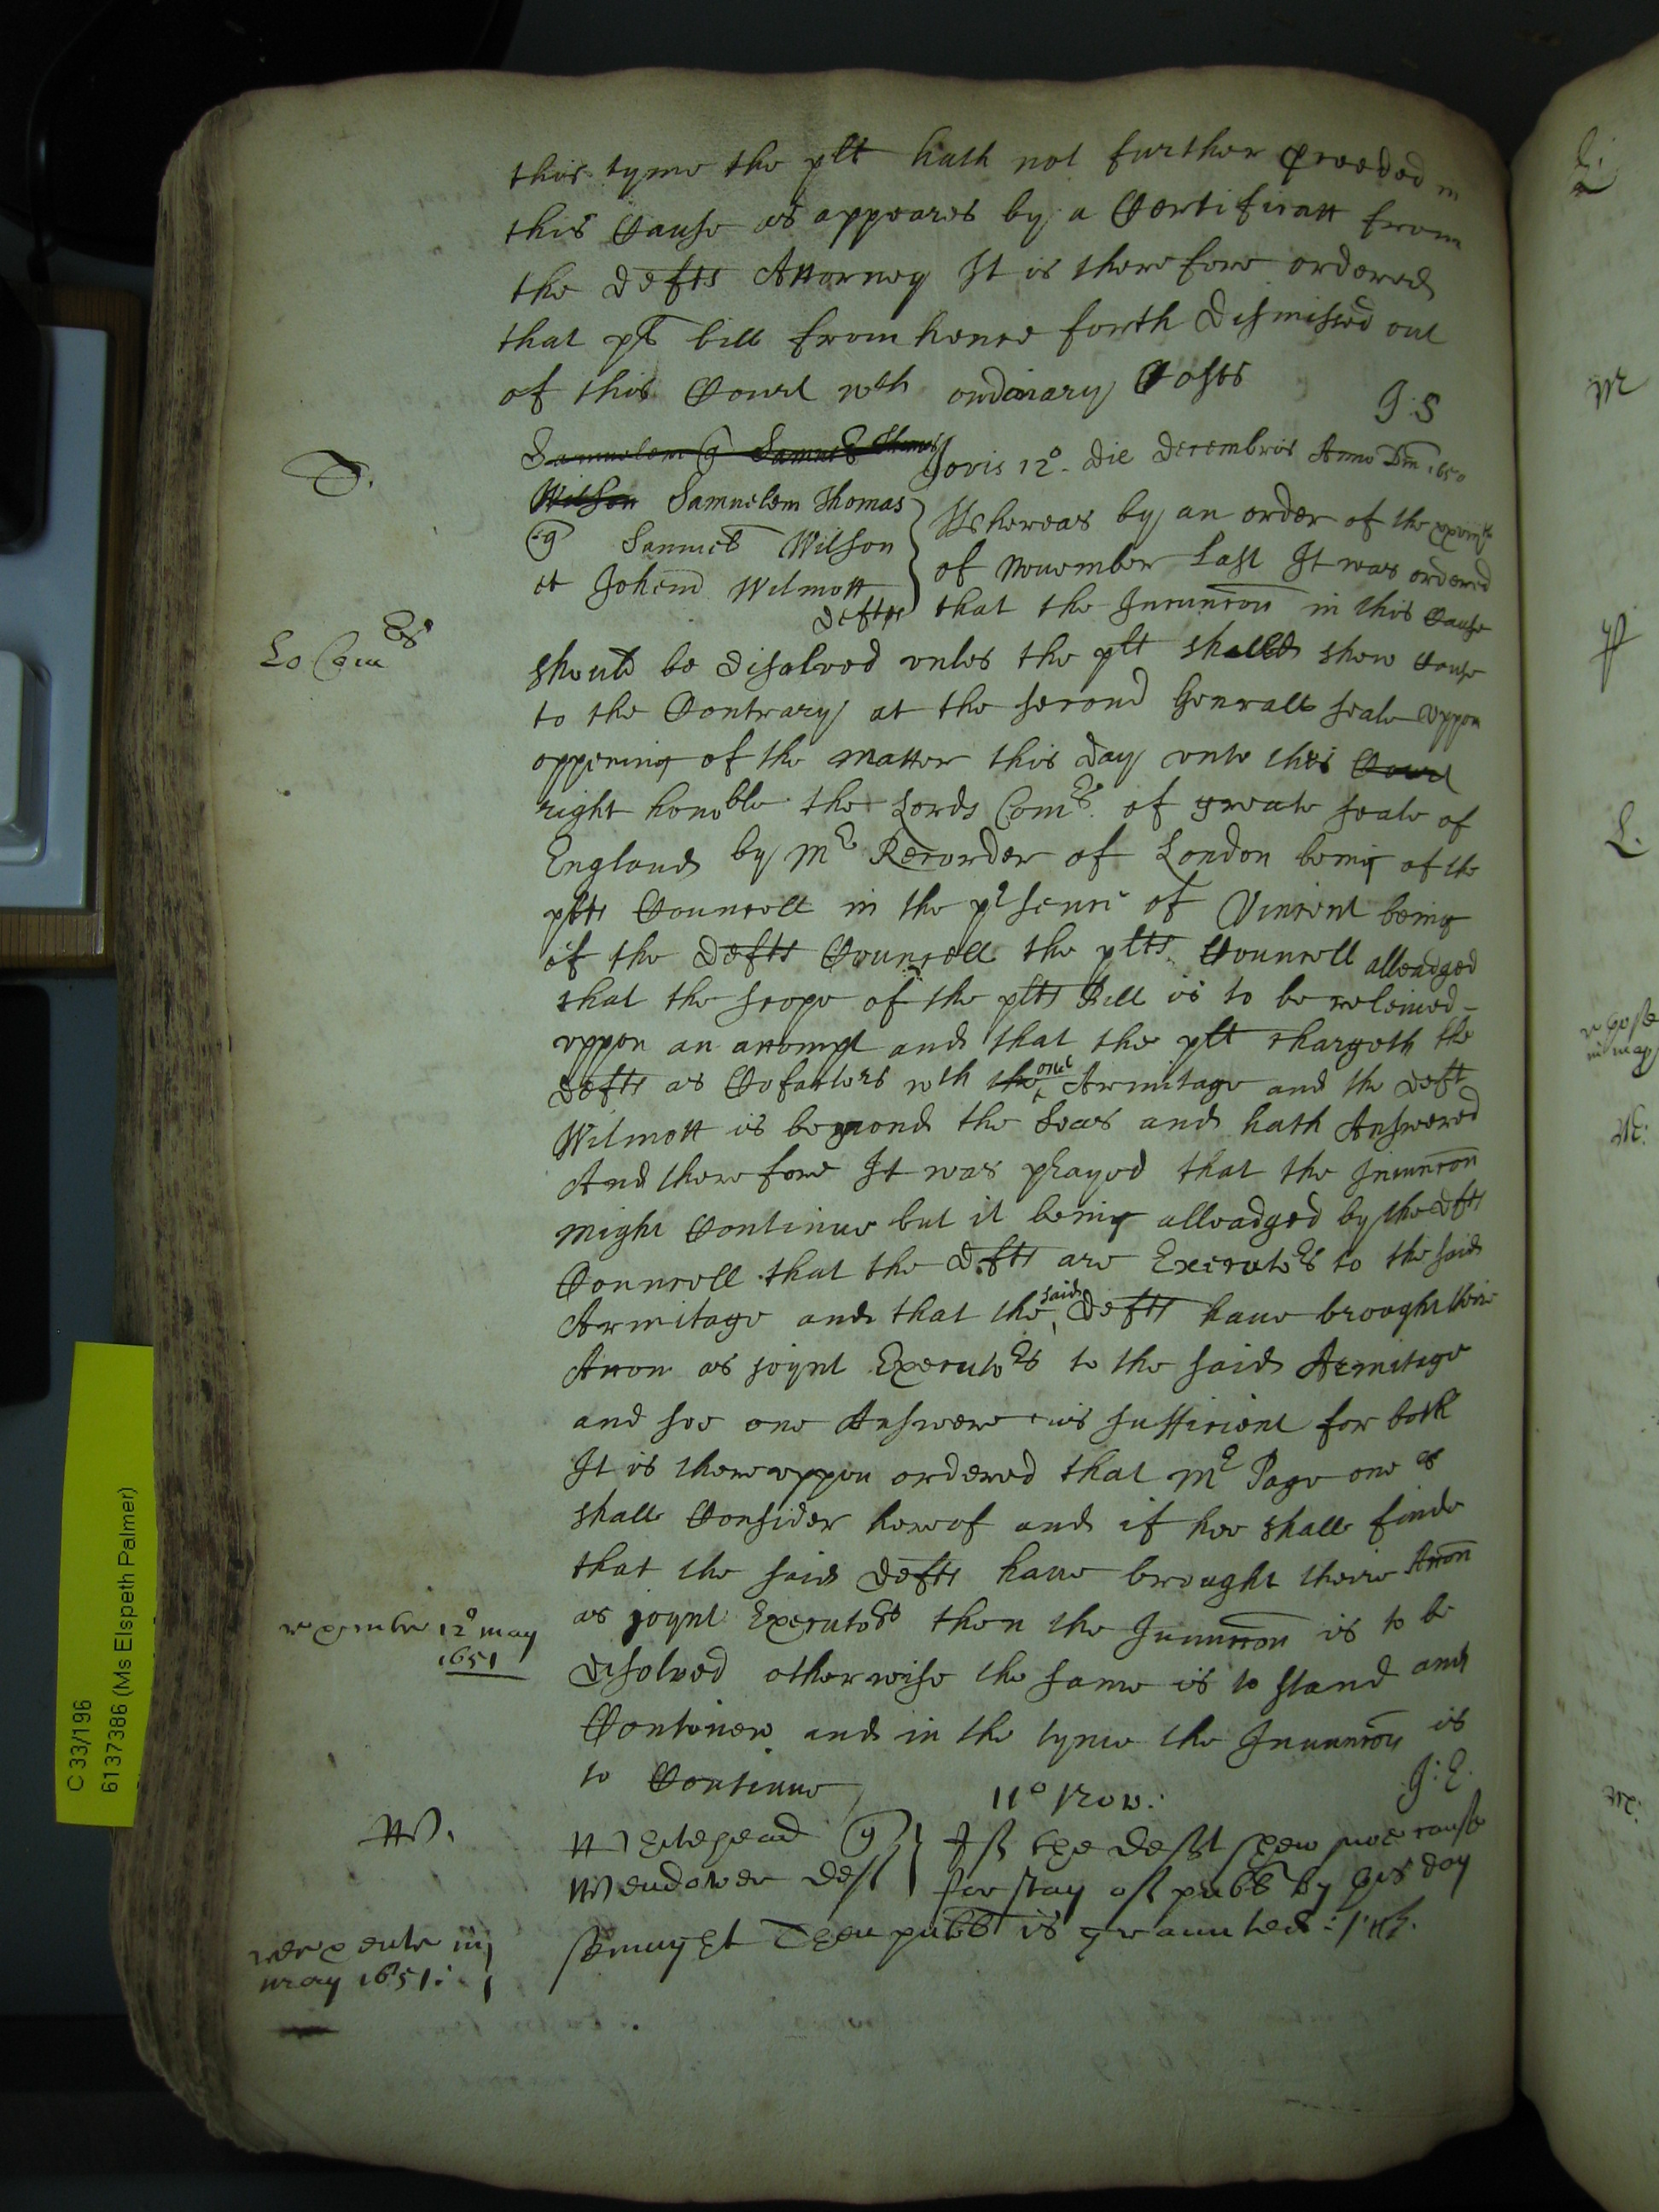 this tyme the plt hath not further proceeded in
this Cause as appeares by a Certificatt from
the Defts Attorney It is therefore ordered
that plts bill from hence forth Dismissed out
of this Court wth ordinary Costs
J: S
Jovis 12o die Decembris Anno Dm 1650
Samuelem Samuel Thomas
Wilson Samuelem Thomas
Samuel Wilson
et Johem Wilmott
Defts
Whereas by an order of the
of November Last It was ordered
that the Iniuncon in this Cause
Lo Comrs
should be disolved unles the plt should shew Cause
to the Contrary at the second Generall seale uppon
oppening of the matter this day unto the Court
right honoble the Lords Comrs of greate seale of
England by Mr Recorder of London being of the
plts Councell in the prsence of Vincent being
of the Defts Councell the plts Councell alleadged
that the scope of the plts Bill is to be releived
uppon an accompt and that the plt chargeth the
Defts as Cofactors wth the one Armitage and the Deft
Wilmott is beyond the Seas and hath Answered
And therefore It was prayed that the Iniuncon
might Continue but it being alleadged by the Dfts
Councell that the Defts are Executors to the said
Armitage and that the said Defts have brought their
Accon as joynt Executors to the said Armitage
and soe one Answere is sufficient for both
It is thereuppon ordered that Mr Page one &c
shall Consider hereof and if hee shall finde
that the said Defts have brought theire Accon
as joynt Executors then the Iniuncon is to be
disolved otherwise the same is to stand and
Contineu and in the tyme the Iniuncon is
to Continue
J: E.
12o may
1651
11o Nov:
W.
Whitehead
Wendover deft
If the deft shew noe cause
for stay of publ by this day
sennight Then publ is graunted:
may 1651:
C 33/196
6137386 (Ms Elspeth Palmer)